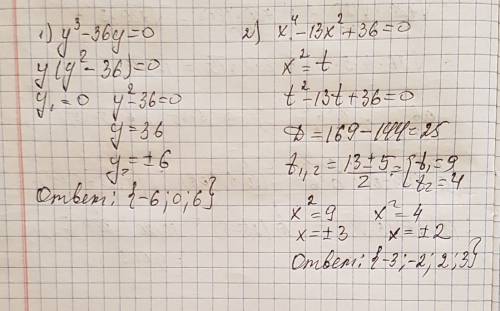 1) y³-36y=0
y(y²-36)=0
y₁=0 y²-36=0
y=36
y₂=±6
Ответ: {-6; 0; 6}
2) x⁴-13x²+36=0
x²=t
t²-13t+36=0
D=169-144=25
t₁,₂=(13±5)/2={t₁=9 t₂=4
x²=9 x²=4
x=±3 x=±2
Ответ: {-3; -2; 2; 3}